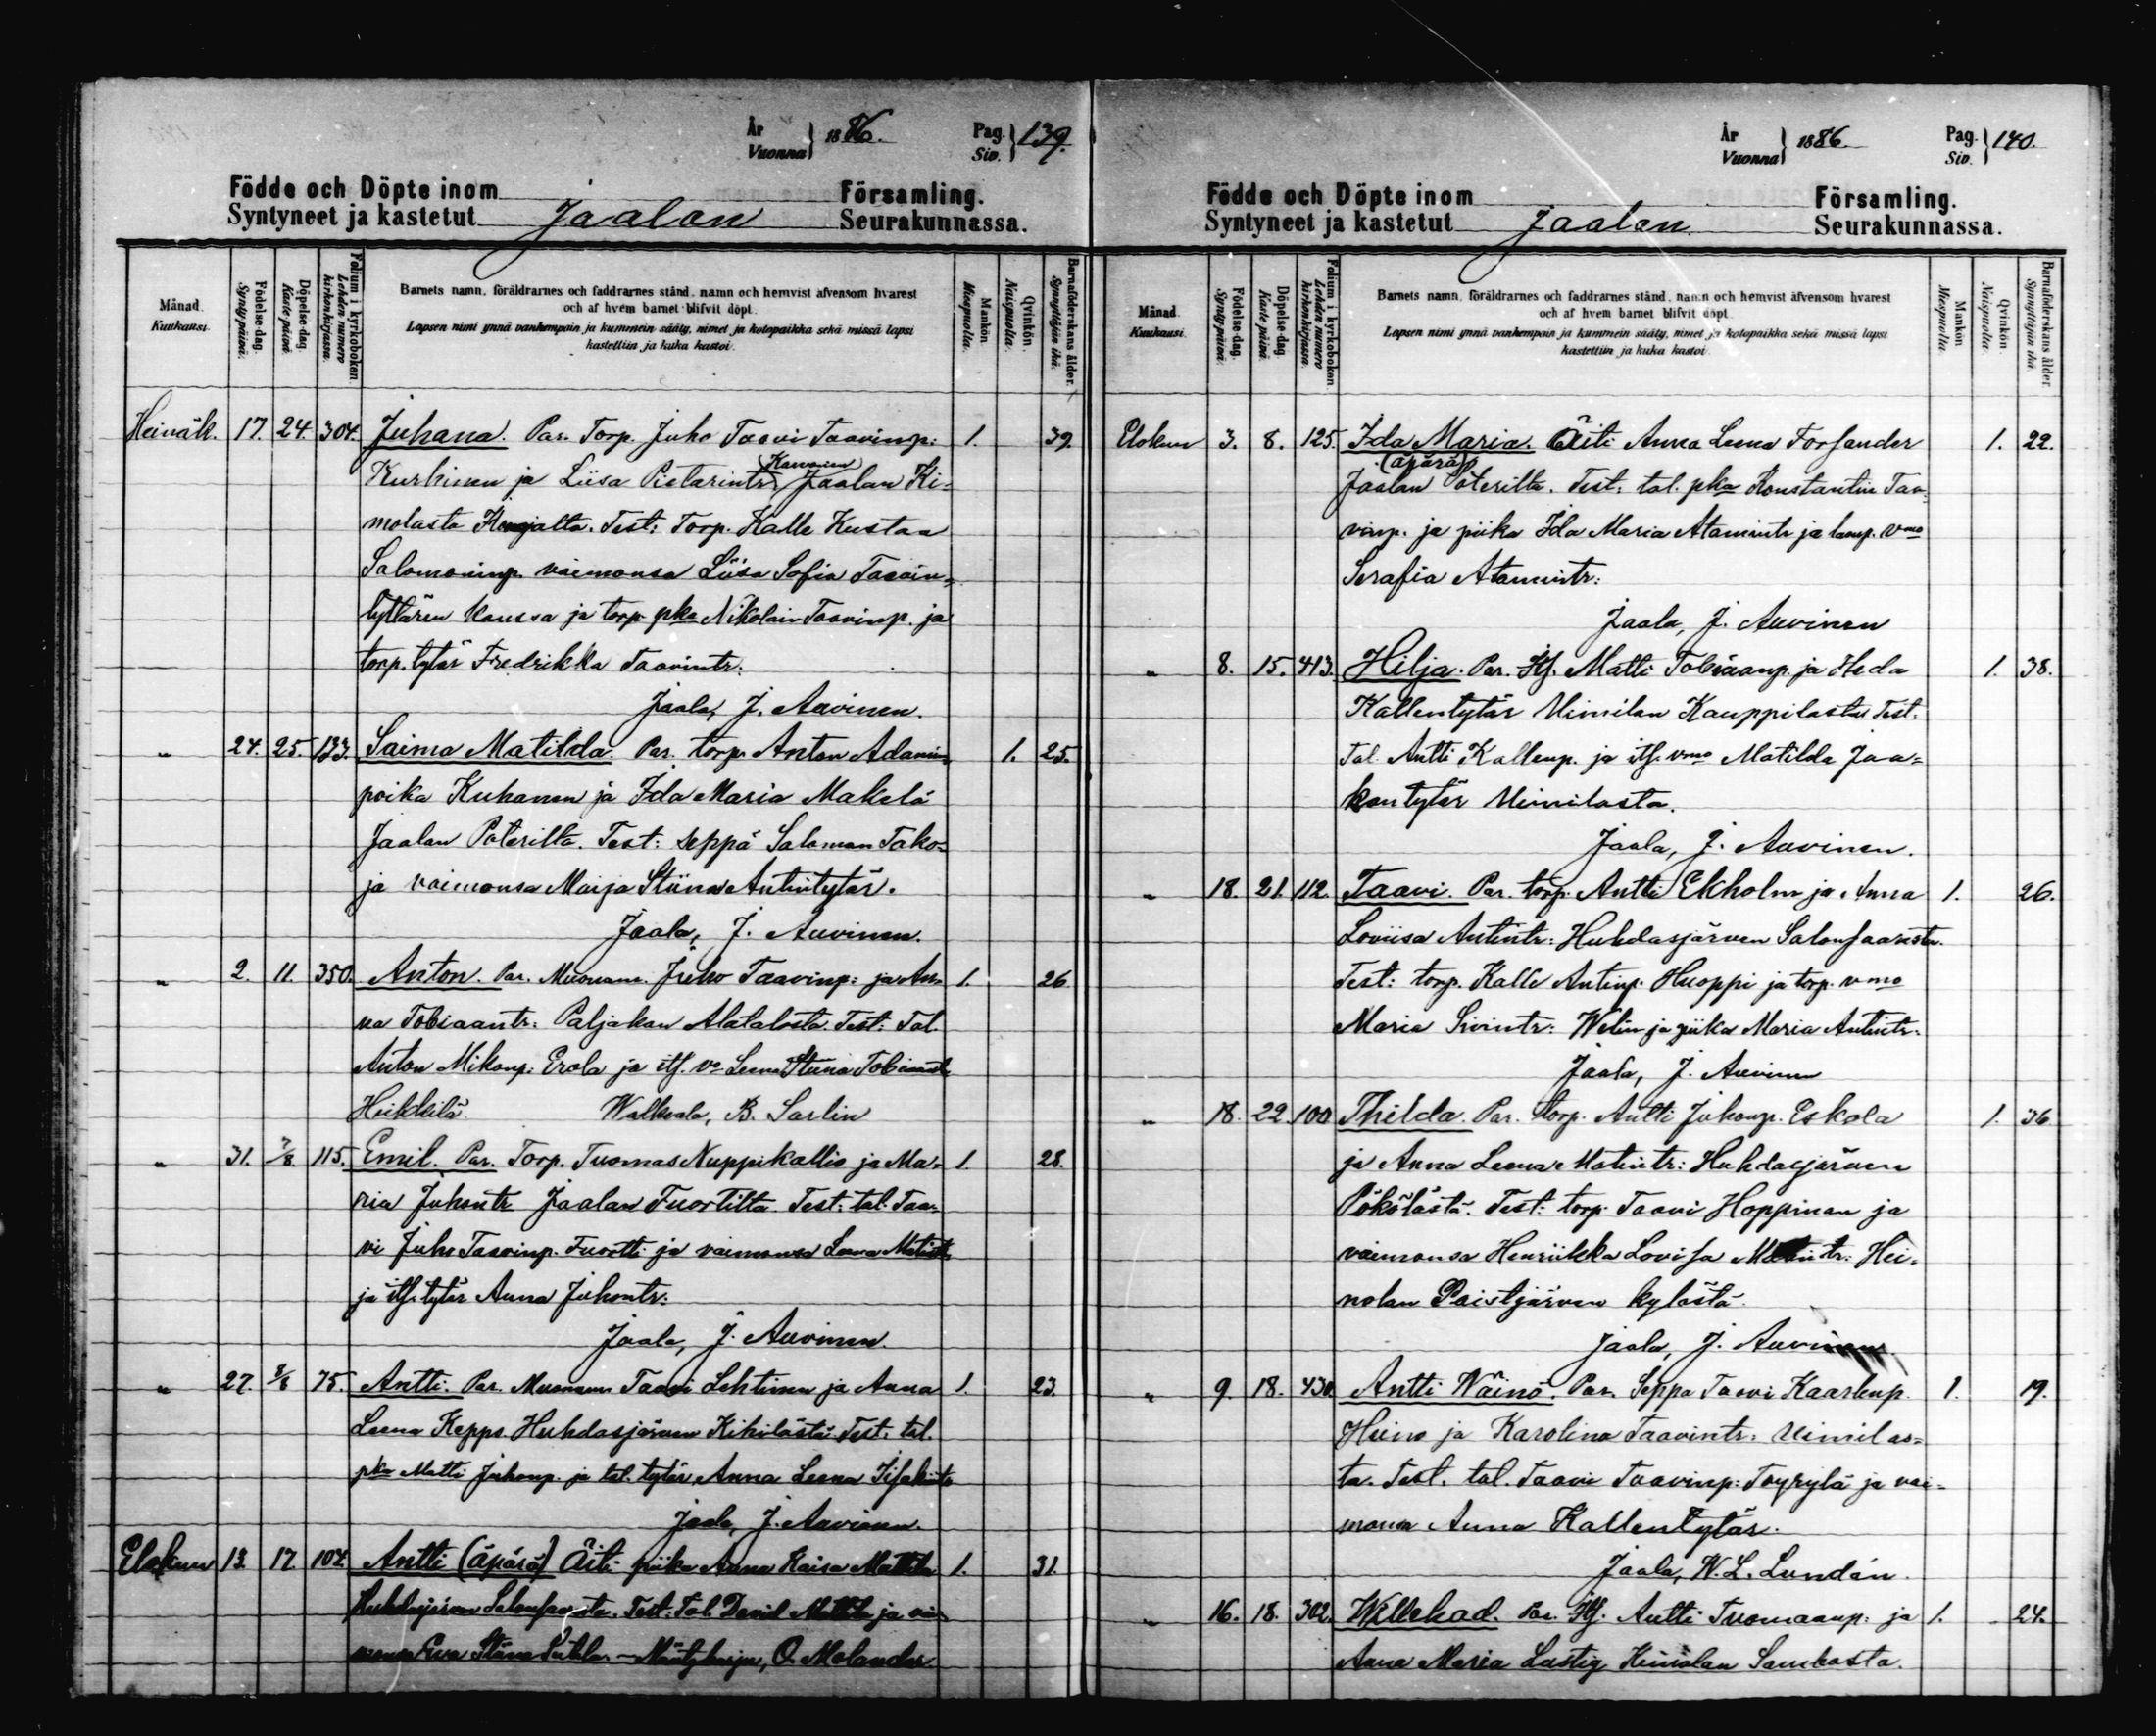 År
Vuonna } 1886.
Pag.
Siv. } 139.
Födde och Döpte inom Församling.
Syntyneet ja kastetut Jaalan Seurakunnassa.
Månad.
Kuukausi.
Födelse dag.
Synty-päivä.
Döpelse-dag.
Kaste päivä.
Folium i kyrkoboken
Lehden numero kirkonkirjassa.
Barnets namn, föräldrarnes och faddrarnes stånd, namn och hemvist äfvensom hvarest
och af hvem barnet blifvit döpt.
Lapsen nimi ynnä vanhempain ja kummein sääty, nimet ja kotopaikka sekä missä lapsi
kastettiin ja kuka kastoi.
Mankön
Miespuolia.
Qvinkön.
Naispuolia.
Barnaföderskans ålder.
Synnyttäjän ikä.
Heinäk. 17. 24. 304. Juhana. Par. Torp. Juho Taavi Taavinp: 1. 39.
Kurhinen ja Liisa Pietarintr. Jaalan Ki-
molasta Test: Torp. Kalle Kustaa
Salomoninp. vaimonsa Liisa Sofia Taavin-
tyttären kanssa ja torp. pka Nikolai Taavinp. ja
torp. tytär Fredrikka Taavintr.
Jaala, J. Auvinen.
" 24. 25. 123. Saima Matilda. Par. torp. Anton Adamin- 1. 25.
poika Kuhanen ja Ida Maria Makelä
Jaalan Paterilta. Test: seppä Saloman Tako-
ja vaimonsa Maija Stiina Antintytär.
Jaala, J. Auvinen.
" 2. 11. 350. Anton. Par. Muonam. Juho Taavinp: ja An- 1. 26
na Tobiaantr: Paljakan Alatalosta. Test: Tal.
Anton Mikonp: Erola ja itf. vo Leena Stiina Tobiaantr
Heikkilä. Walkeala, B. Sarlin
" 31. 7/8 115. Emil. Par. Torp. Tuomas Nuppikallio ja Ma- 1. 28.
ria Juhontr Jaalan Tuortilta. Test: tal. Taa-
vi Juho Taavinp. Tuortti ja vaimonsa Leena Matintr
ja itf. tytär Anna Juhontr:
Jaala, J. Auvinen.
" 27. 3/8 75. Antti. Par. Muonam Taavi Lehtinen ja Anna 1. 23.
Leena Keppo. Huhdasjärven Kihilästä Test: tal.
pka Matti Juhonp. ja tal. tytär Anna Leena
Jaala, J. Auvinen.
Elokuu 13. 17. 104. Antti (äpärä) Äiti piika Anna Kaisa Mattila 1. 31.
Huhdasjärven Test: Tal. David Mattila ja vai-
monsa Eva Mäntyharju, O. Melander.
År
Vuonna } 1886.
Pag.
Siv. } 140.
Födde och Döpte inom Församling.
Syntyneet ja kastetut Jaalan Seurakunnassa.
Månad.
Kuukausi.
Födelse dag.
Synty-päivä.
Döpelse-dag.
Kaste päivä.
Folium i kyrkoboken
Lehden numero kirkonkirjassa.
Barnets namn, föräldrarnes och faddrarnes stånd, namn och hemvist äfvensom hvarest
och af hvem barnet blifvit döpt.
Lapsen nimi ynnä vanhempain ja kummein sääty, nimet ja kotopaikka sekä missä lapsi
kastettiin ja kuka kastoi.
Mankön
Miespuolia.
Qvinkön.
Naispuolia.
Barnaföderskans ålder.
Synnyttäjän ikä.
Elokuu 3. 8. 125. Ida Maria. Äiti Anna Leena Forsander 1. 22.
(äpärä)
Jaalan Paterilta. Test: tal. pka Konstantin Taa-
vinp. ja piika Ida Maria Atamintr ja lamp. vmo
Serafia Atamintr:
Jaala, J. Auvinen
" 8. 15. 413. Hilja. Par. Itf. Matti Tobiaanp. ja Heda 1. 38.
Kallentytär Uimilan Kauppilasta Test.
Tal. Antti Kallenp. ja itf. vmo Matilda Jaa-
kontytär Uimilasta.
Jaala, J. Auvinen.
" 18. 21. 112. Taavi. Par. torp. Antti Ekholm ja Anna 1. 26.
Loviisa Antintr: Huhdasjärven Salonsaaresta.
Test: torp. Kalle Antinp. Huoppi ja torp. vmo
Maria Sivintr: Welin ja piika Maria Antintr.
Jaala, J. Auvinen
" 18. 22. 100 Thilda. Par. torp. Antti Juhonp. Eskola 1. 36
ja Anna Leena Matintr: Huhdasjärven
Pökölästä. Test: torp. Taavi Hoppinan ja
vaimonsa Henriikka Lovisa Matintr: Hei-
nolan Paistjärven kylästä.
Jaala, J. Auvinen.
" 9. 18. 430. Antti Wäinö. Par. Seppä Taavi Kaarlenp. 1. 19.
Heino ja Karolina Taavintr: Uimilas-
ta. Test. tal. Taavi Taavinp: Toyrylä ja vai-
monsa Anna Kallentytär.
Jaala, W. L. Lundán.
" 16. 18. 302. Willehad. Par. Itf. Antti Tuomaanp: ja 1. 24.
Anna Maria Lustig Kimolan Sambasta.